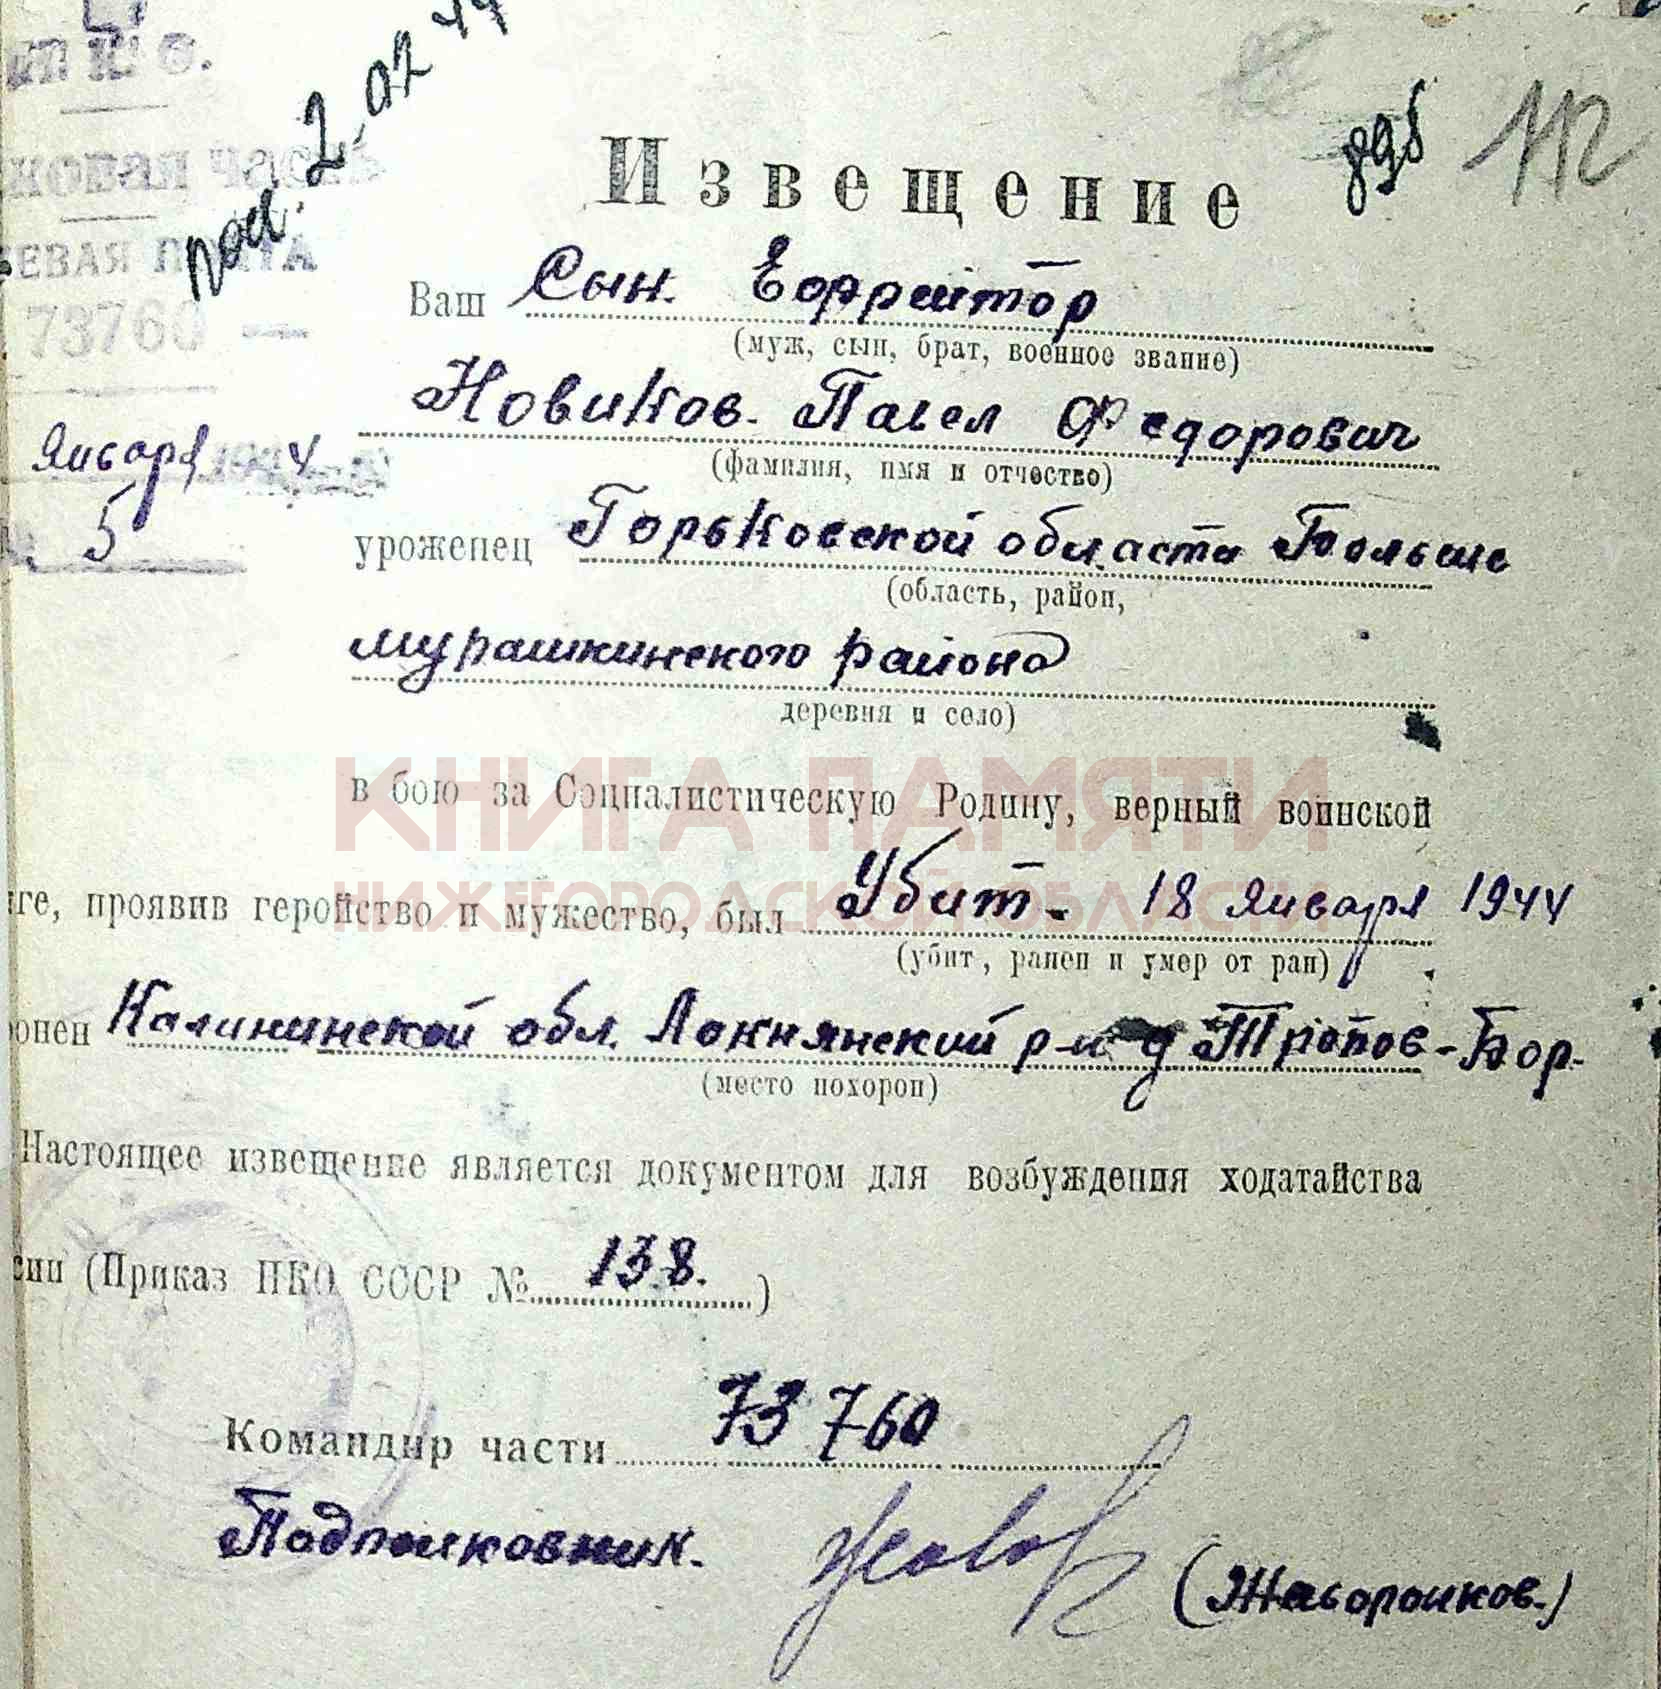 пол. 2.02.44
898 112
К. О.
ПОЛЕВАЯ ПОЧТА
73760 —
Января 1944
5
Извещение
Ваш Сын. Ефрейтор
(муж, сын, брат, военное звание)
Новиков. Павел Федорович
(фамилия, имя и отчество)
уроженец Горьковской области Больше
(область, район,
мурашкинского района
деревня и село)
в бою за Социалистическую Родину, верный воинской
КНИГА ПАМЯТИ
НИЖЕГОРОДСКОЙ ОБЛАСТИ
яге, проявив геройство и мужество, был Убит. 18 Января 1944
(убит, ранен и умер от ран)
ронен Калининской обл. Локнянский р-н д Тропов-Бор.
(место похорон)
Настоящее извещение является документом для возбуждения ходатайства
сии (Приказ НКО СССР № 138.)
Командир части 73760
Подполковник. (Жаворонков.)